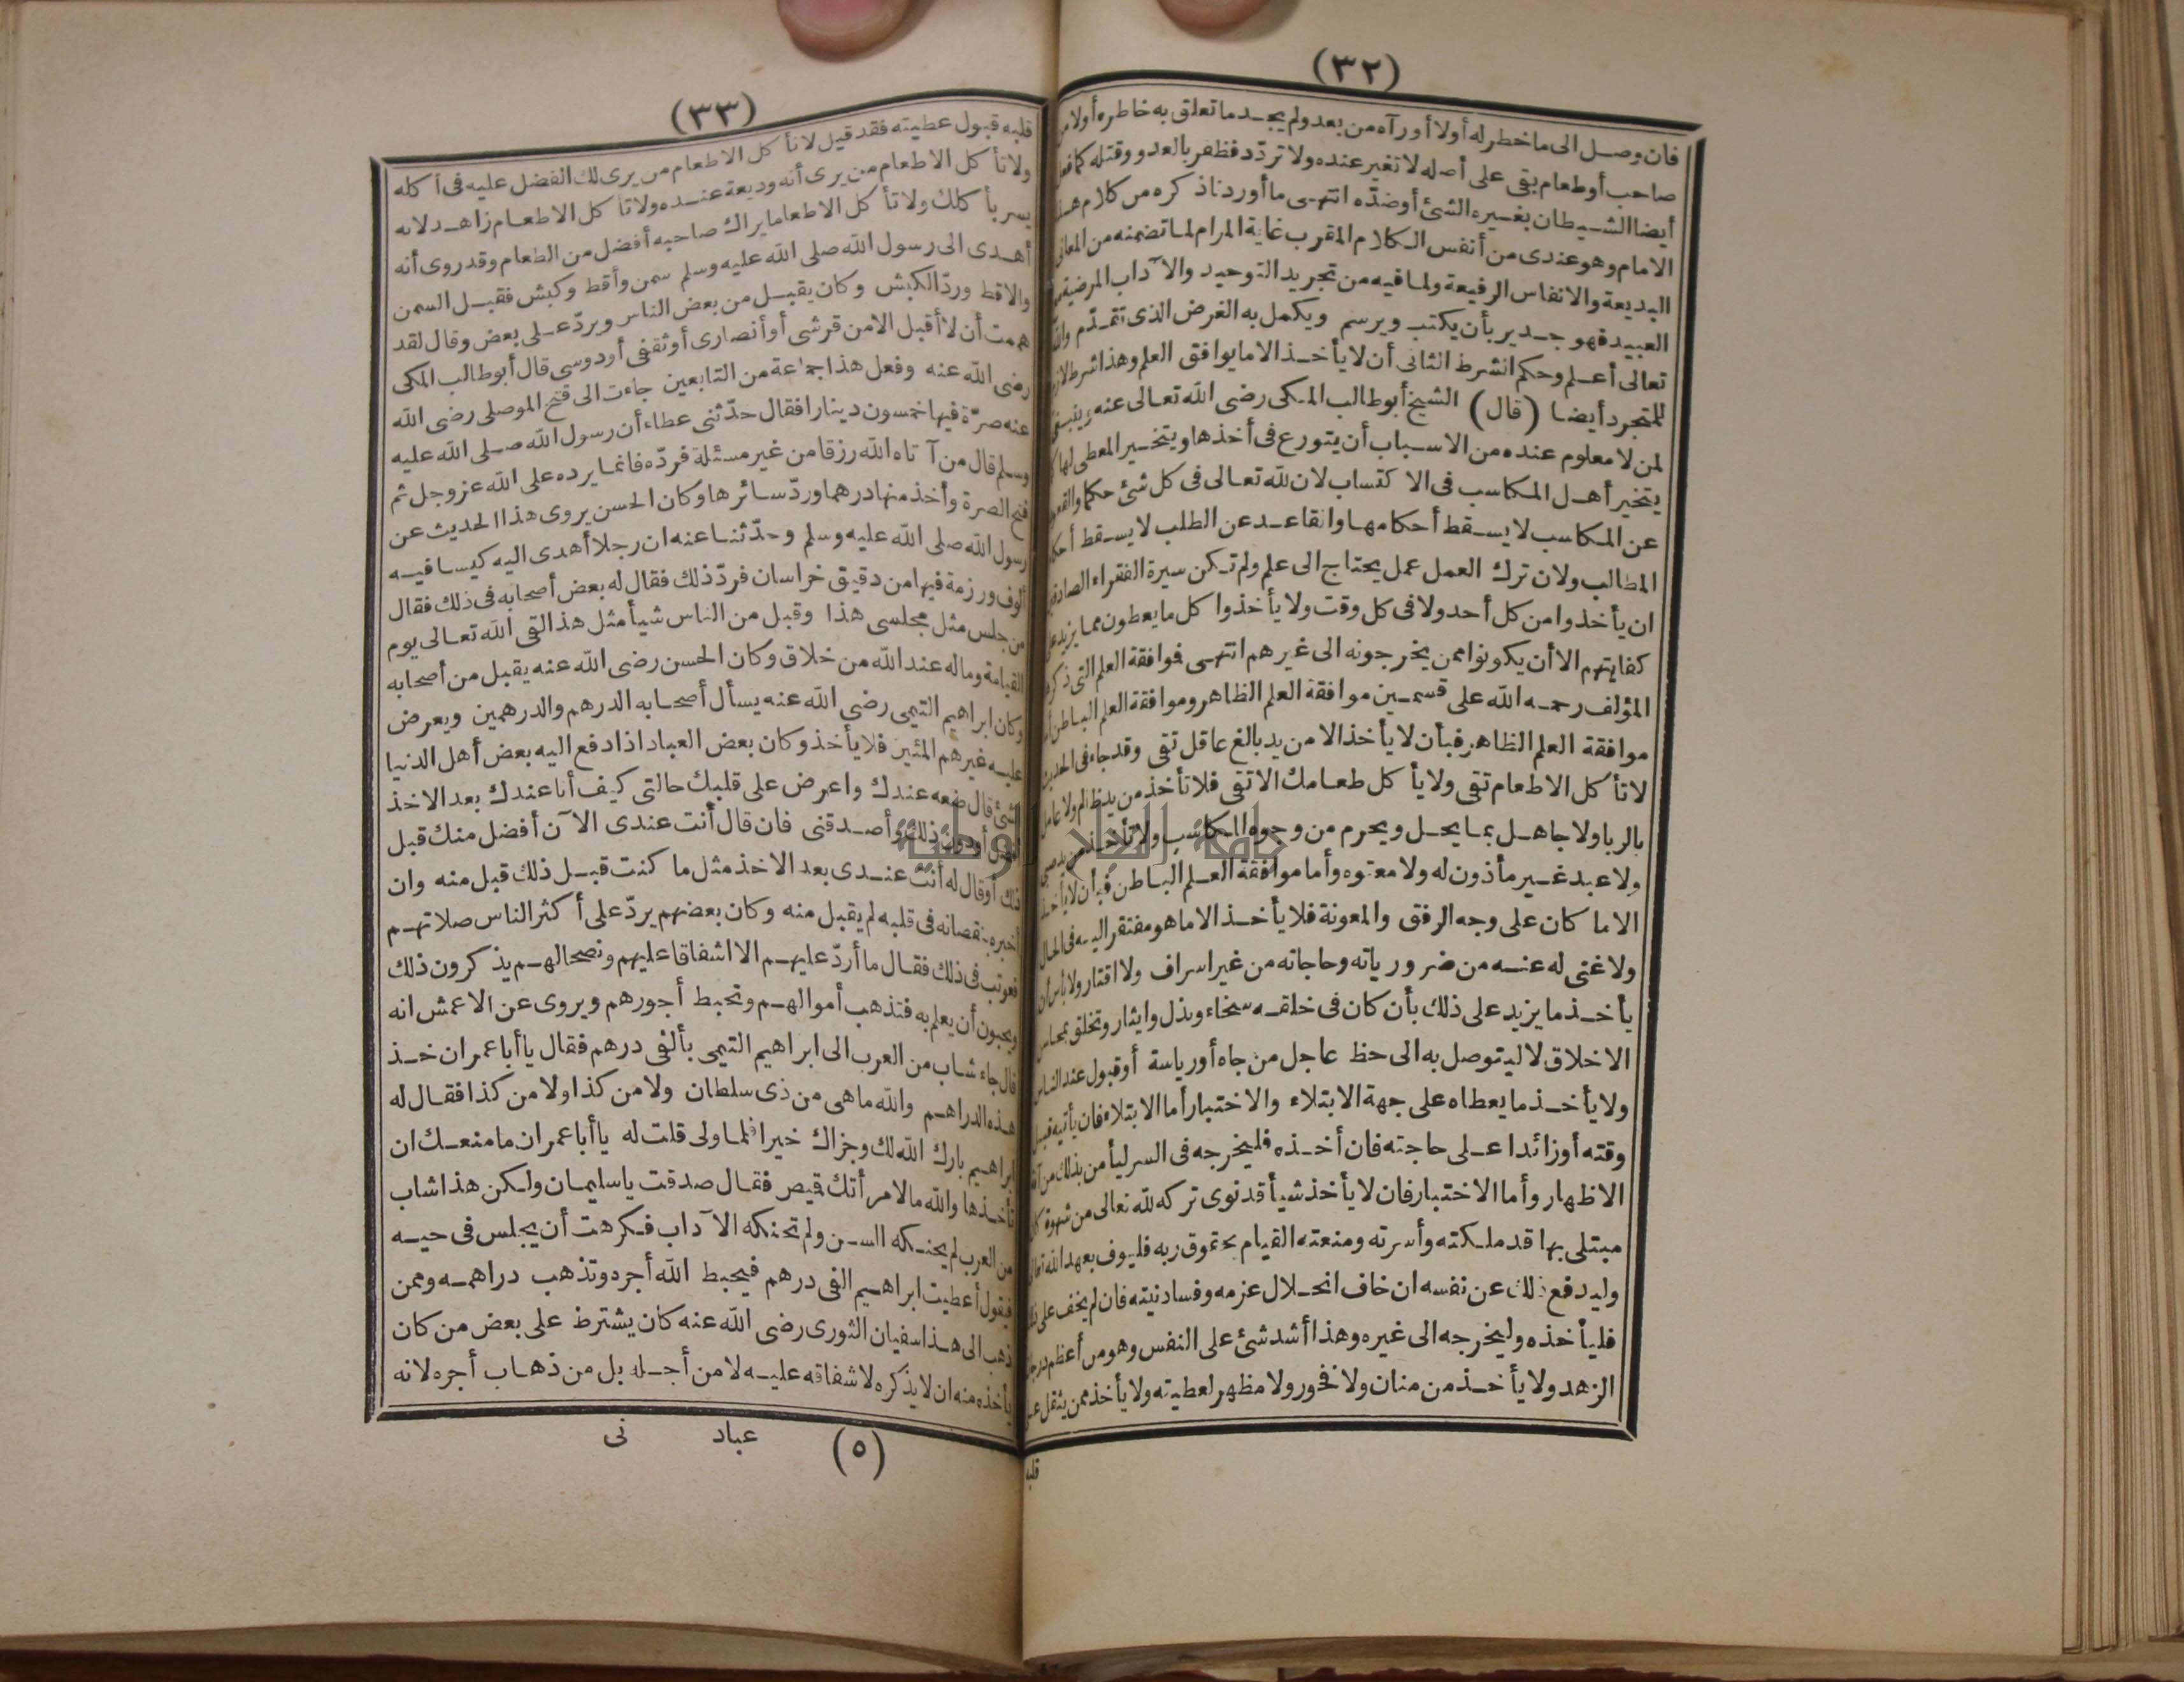 (٣٢)
فان وصل الى ما خطر له أولا أو رآه من بعد ولم يجد ما تعلق به خاطره أولا من
صاحب أو طعام بقى على أصله لا تغير عنده ولا تردّد فظفر بالعدو وقتله كما فعل
أيضا الشيطان بغيره الشئ أو ضدّه انتهى ما أوردنا ذكره من كلام هذا
الامام وهو عندى من أنفس الكلام المقرب غاية المرام لما تضمنه من المعانى
البديعة والانفاس الرفيعة ولما فيه من تجريد التوحيد والآداب المرضية
العبيد فهو جدير بأن يكتب ويرسم ويكمل به الغرض الذى تقدّم والله
تعالى أعلم وحكم الشرط الثانى أن لا يأخذ الا ما يوافق العلم وهذا شرط لازم
للمتجرد أيضا (قال) الشيخ أبو طالب المكى رضى الله تعالى عنه وينبغى
لمن لا معلوم عنده من الاسباب أن يتورع فى أخذها ويتخير المعطى لها كما
يتخير أهل المكاسب فى الاكتساب لان لله تعالى فى كل شئ حكما والقعود
عن المكاسب لا يسقط أحكامها والقاعد عن الطلب لا يسقط أحكام
المطالب ولان ترك العمل عمل يحتاج الى علم ولم تكن سيرة الفقراء الصادقين
ان يأخذوا من كل أحد ولا فى كل وقت ولا يأخذوا كل ما يعطون مما يزيد على
كفايتهم الا أن يكونوا ممن يخرجونه الى غيرهم انتهى فوافقة العلم التى ذكره
المؤلف رحمه الله على قسمين موافقة العلم الظاهر وموافقة العلم الباطن أما
موافقة العلم الظاهر فبأن لا يأخذ الا من يد بالغ عاقل تقى وقد جاء فى الحديث
لا تأكل الا طعام تقى ولا يأكل طعامك الا تقى فلا تأخذ من يد ظالم ولا عامل
بالربا ولا جاهل بما يحل ويحرم من وجوه المكاسب ولا تأخذ من يد صبى
ولا عبد غير مأذون له ولا معتوه وأما موافقة العلم الباطن فبأن لا يأخذ
الا ما كان على وجه الرفق والمعونة فلا يأخذ الا ما هو مفتقر اليه فى الحال
ولا غنى له عنه من ضرورياته وحاجاته من غير اسراف ولا اقتار ولا بأس أن
يأخذ ما يزيد على ذلك بأن كان فى خلقه سخاء وبذل وايثار وتخلق بمحاسن
الاخلاق لا ليتوصل به الى حظ عاجل من جاه أو رياسة أو قبول عند الناس
ولا يأخذ ما يعطاه على جهة الابتلاء والاختبار أما الابتلاء فان يأتيه قبل
وقته أو زائدا على حاجته فان أخذه فليخرجه فى السر ليأمن بذلك من آفة
الاظهار وأما الاختبار فان لا يأخذ شيأ قد نوى تركه لله تعالى من شهوة كان
مبتلى بها قد ملكته وأسرته ومنعته القيام بحقوق ربه فليوف بعهد الله تعالى
وليدفع ذلك عن نفسه ان خاف انحلال عزمه وفساد نيته فان لم يخف على ذلك
فليأخذه وليخرجه الى غيره وهذا أشد شئ على النفس وهو من أعظم درجات
الزهد ولا يأخذ من منان ولا فخور ولا مظهر لعطيته ولا يأخذ ممن يثقل على
قلبه
(٣٣)
قلبه قبول عطيته فقد قيل لا تأكل الا طعام من يرى لك الفضل عليه فى أكله
ولا تأكل الا طعام من يرى أنه وديعة عنده ولا تأكل الا طعام زاهد لانه
يسر بأكلك ولا تأكل الا طعاما يراك صاحبه أفضل من الطعام وقد روى أنه
أهدى الى رسول الله صلى الله عليه وسلم سمن وأقط وكبش فقبل السمن
والاقط وردّ الكبش وكان يقبل من بعض الناس ويردّ على بعض وقال لقد
هممت أن لا أقبل الا من قرشى أو أنصارى أو ثقفى أو دوسى قال أبو طالب المكى
رضى الله عنه وفعل هذا جماعة من التابعين جاءت الى فتح الموصلى رضى الله
عنه صرّة فيها خمسون دينارا فقال حدّثنى عطاء أن رسول الله صلى الله عليه
وسلم قال من آتاه الله رزقا من غير مسئلة فردّه فانما يرده على الله عز وجل ثم
فتح الصرة وأخذ منها درهما وردّ سائرها وكان الحسن يروى هذا الحديث عن
رسول الله صلى الله عليه وسلم وحدّثنا عنه ان رجلا أهدى اليه كيسا فيه
ألوف ورزمة فيها من دقيق خراسان فردّ ذلك فقال له بعض أصحابه فى ذلك فقال
من جلس مثل مجلسى هذا وقبل من الناس شيأ مثل هذا لقى الله تعالى يوم
القيامة وما له عند الله من خلاق وكان الحسن رضى الله عنه يقبل من أصحابه
وكان ابراهيم التيمى رضى الله عنه يسأل أصحابه الدرهم والدرهمين ويعرض
عليه غيرهم المئين فلا يأخذ وكان بعض العباد اذا دفع اليه بعض أهل الدنيا
الشئ قال ضعه عندك واعرض على قلبك حالتى كيف أنا عندك بعد الاخذ
أفضل أو دون ذلك وأصدقنى فان قال أنت عندى الآن أفضل منك قبل
ذلك أو قال له أنت عندى بعد الاخذ مثل ما كنت قبل ذلك قبل منه وان
أخبره بنقصانه فى قلبه لم يقبل منه وكان بعضهم يردّ على أكثر الناس صلاتهم
فعوتب فى ذلك فقال ما أردّ عليهم الا اشفاقا عليهم ونصحا لهم يذكرون ذلك
ويحبون أن يعلم به فتذهب أموالهم وتحبط أجورهم ويروى عن الاعمش انه
قال جاء شاب من العرب الى ابراهيم التيمى بألفى درهم فقال يا أبا عمران خذ
هذه الدراهم والله ما هى من ذى سلطان ولا من كذا ولا من كذا فقال له
ابراهيم بارك الله لك وجزاك خيرا فلما ولى قلت له يا أبا عمران ما منعك ان
تأخذها والله ما لامرأتك قيص فقال صدقت يا سليمان ولكن هذا شاب
من العرب لم يحنكه السن ولم تحنكه الآداب فكرهت أن يجلس فى حيه
فيقول أعطيت ابراهيم ألفى درهم فيحبط الله أجره وتذهب دراهمه وممن
ذهب الى هذا سفيان الثورى رضى الله عنه كان يشترط على بعض من كان
يأخذه منه ان لا يذكره لا شفاقه عليه لا من أجله بل من ذهاب أجره لانه
(٥) عباد نى
جامعة النجاح الوطنية